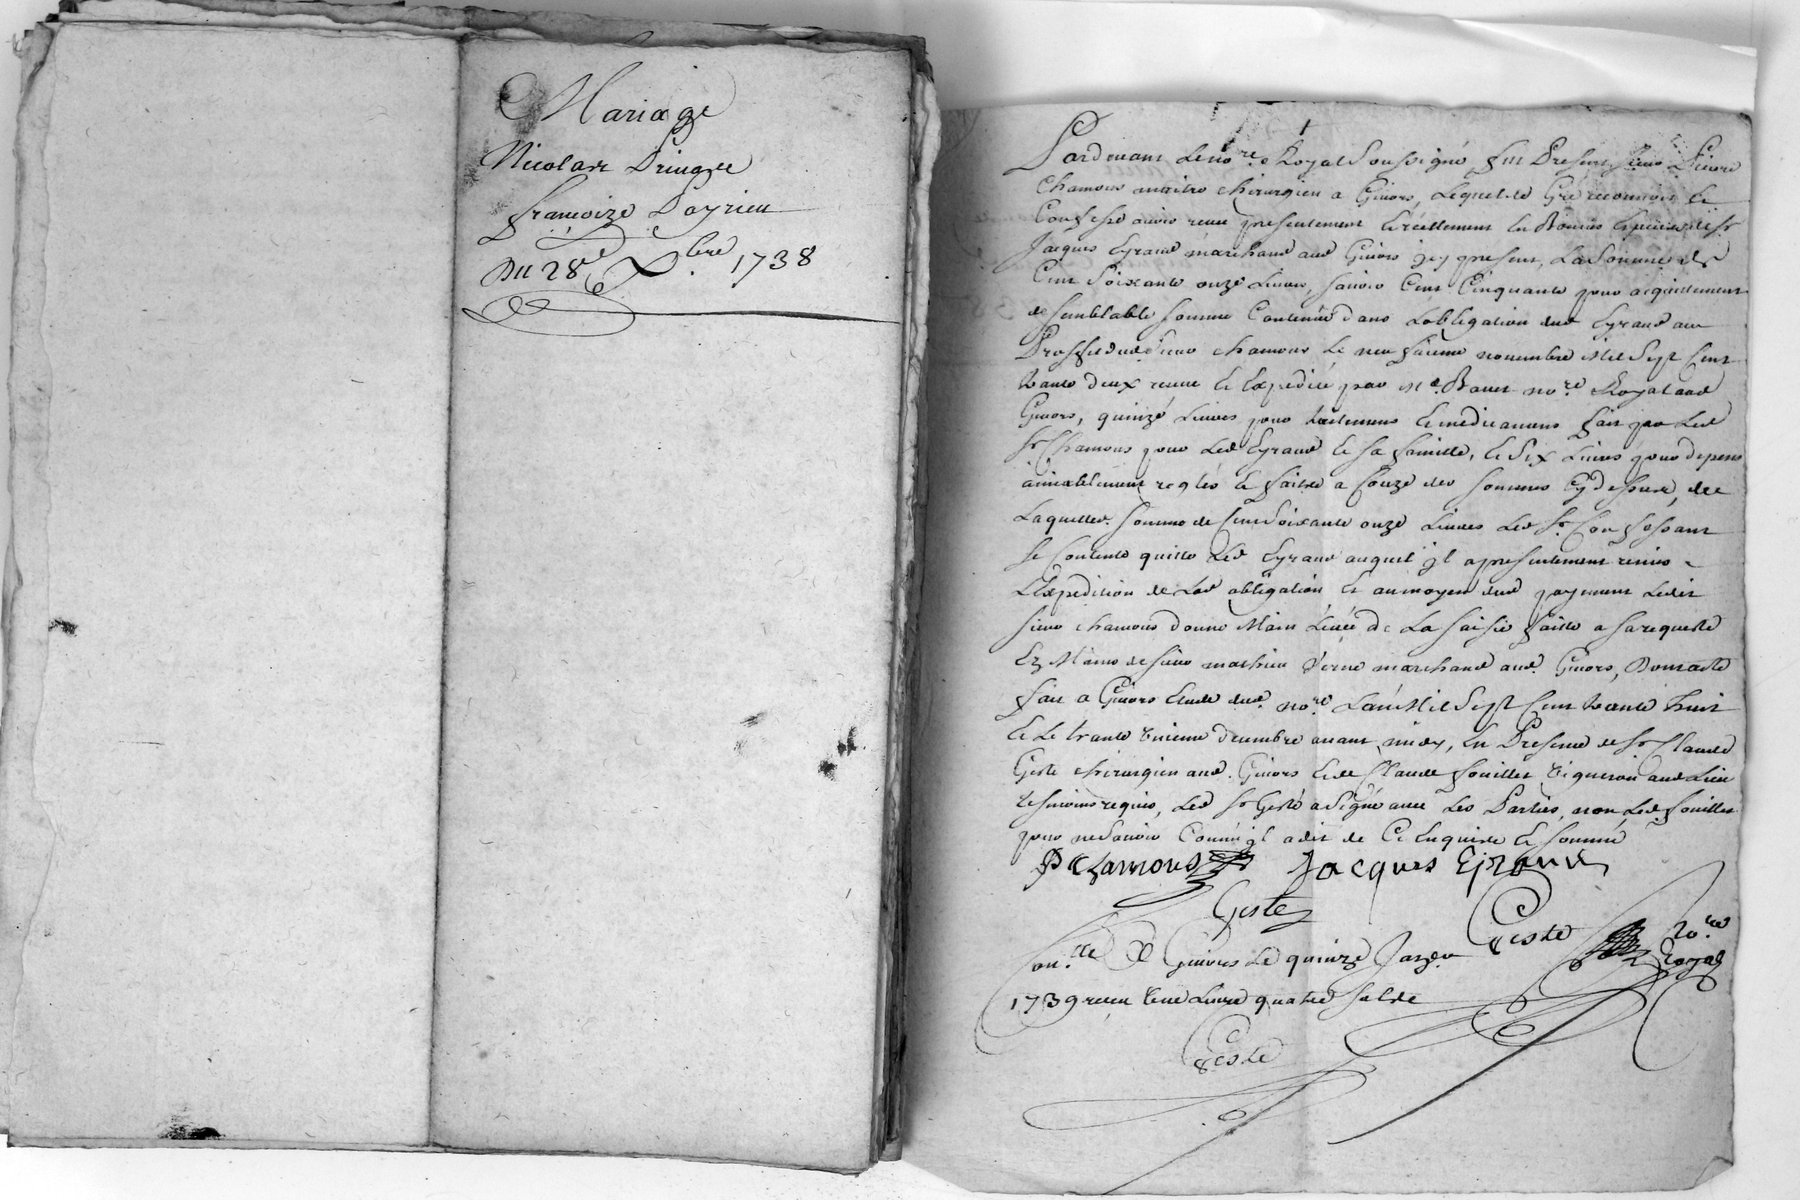 Mariage
Nicolas Pringle
françoize Payrieu
Du 28e Xbre 1738
Pardevant Le nore Royal Soussigné fut Present Sieur Pierre
Chamous maitre chirurgien a Givors, Lequel de Gré reconnoit et
Confesse avoir receu presentement et reellement en Bonnes Especes de sr
Jacques Eyraud marchand aud Givors jcy present, La Somme de
Cent Soixante onze Livres, savoir Cent Cinquante pour acquittement
de semblable somme Contenue dans Lobligation dud Eyraud au
Proffit dud Sieur chamous Le neufvieme novembre Mil Sept Cent
trante deux receue et Expediée par Me nore Royal aud
Givors, quinze Livres pour traitemens et medicamens fait par Led
sr Chamous pour Led Eyraud et sa famille, et Six Livres pour depens
aimablement reglés des sommes cy dessus, de
Laquelle somme de Cent Soixante onze Livres Led sr Confessant
se Contente quitte Led Eyraud auquel jl a presentement remis
L'Expedition de Lad obligation et au moyen dud payement Ledit
sieur chamous donne Main Levée de La saisie faitte a sa requeste
Ez Mains de sieur mathieu Verne marchand aud. Givors, Dont acte
fait a Givors Etude dud. nore Lan Mil Sept Cent trante huit
et Le trante unieme decembre avant midy, En Presence de sr Claude
Geste chirurgien aud. Givors et de Claude fouillet Vigneron aud Lieu
tesmoins requis, Led sr Geste a Signé avec Les Parties, non Led fouillet
pour ne Savoir Comme jl a dit de Ce Enquis et sommé
P Chamous Jacques Ejraud
Geste
Geste nore Royal
Conlle a Givors Le quinze Janver
1739 receu une Livre quatre sols
Geste